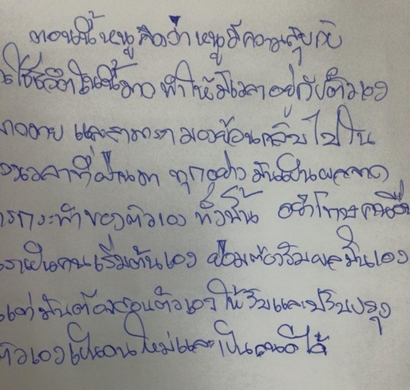 ตอนนี้หนูคิดว่า หนูมีความสุขกับ
ใช้ชีวิตในนี้มาก ทำให้มีเวลาอยู่กับตัวเอง
และสามารถมองย้อนกลับไปใน
เวลาที่ผ่านมา ทุกอย่างมันเป็นผลจาก
การกระทำของตัวเอง ทั้งนั้น อย่าโทษคนอื่น
เราเป็นคนเริ่มต้นเอง ย่อมต้องรับผลมันเอง
แต่มันต้องสอนตัวเองให้รับและปรับปรุง
ตัวเองเป็นคนใหม่และเป็นคนดีได้